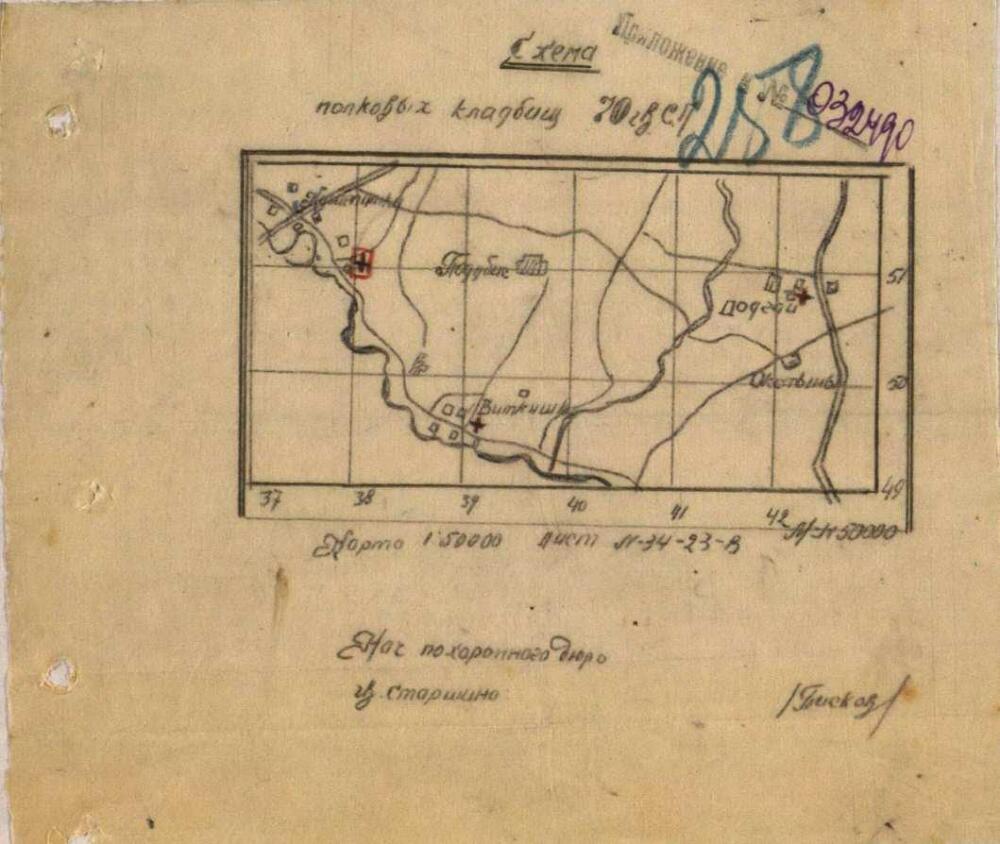 Схема
Приложение к №
полковых кладбищ 70 гв СП
258
032490
Поддубен
51
Подгай
50
Виткишки
49
37 38 39 40 41 42
М 1:50000
Карта 1:50000 лист N-34-23-В
Нач похоронного бюро
гв. старшина